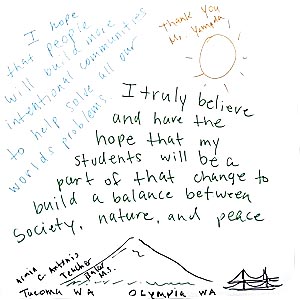 I hope
that people
will build more
intentional communities
to help solve all our
worlds problems.
Thank You
Ms. Yamada
I truly believe
and have the
hope that my
students will be a
part of that change to
build a balance between
society, nature, and peace
C Antonio
Teacher
M.S.
Tacoma WA
OLYMPIA WA